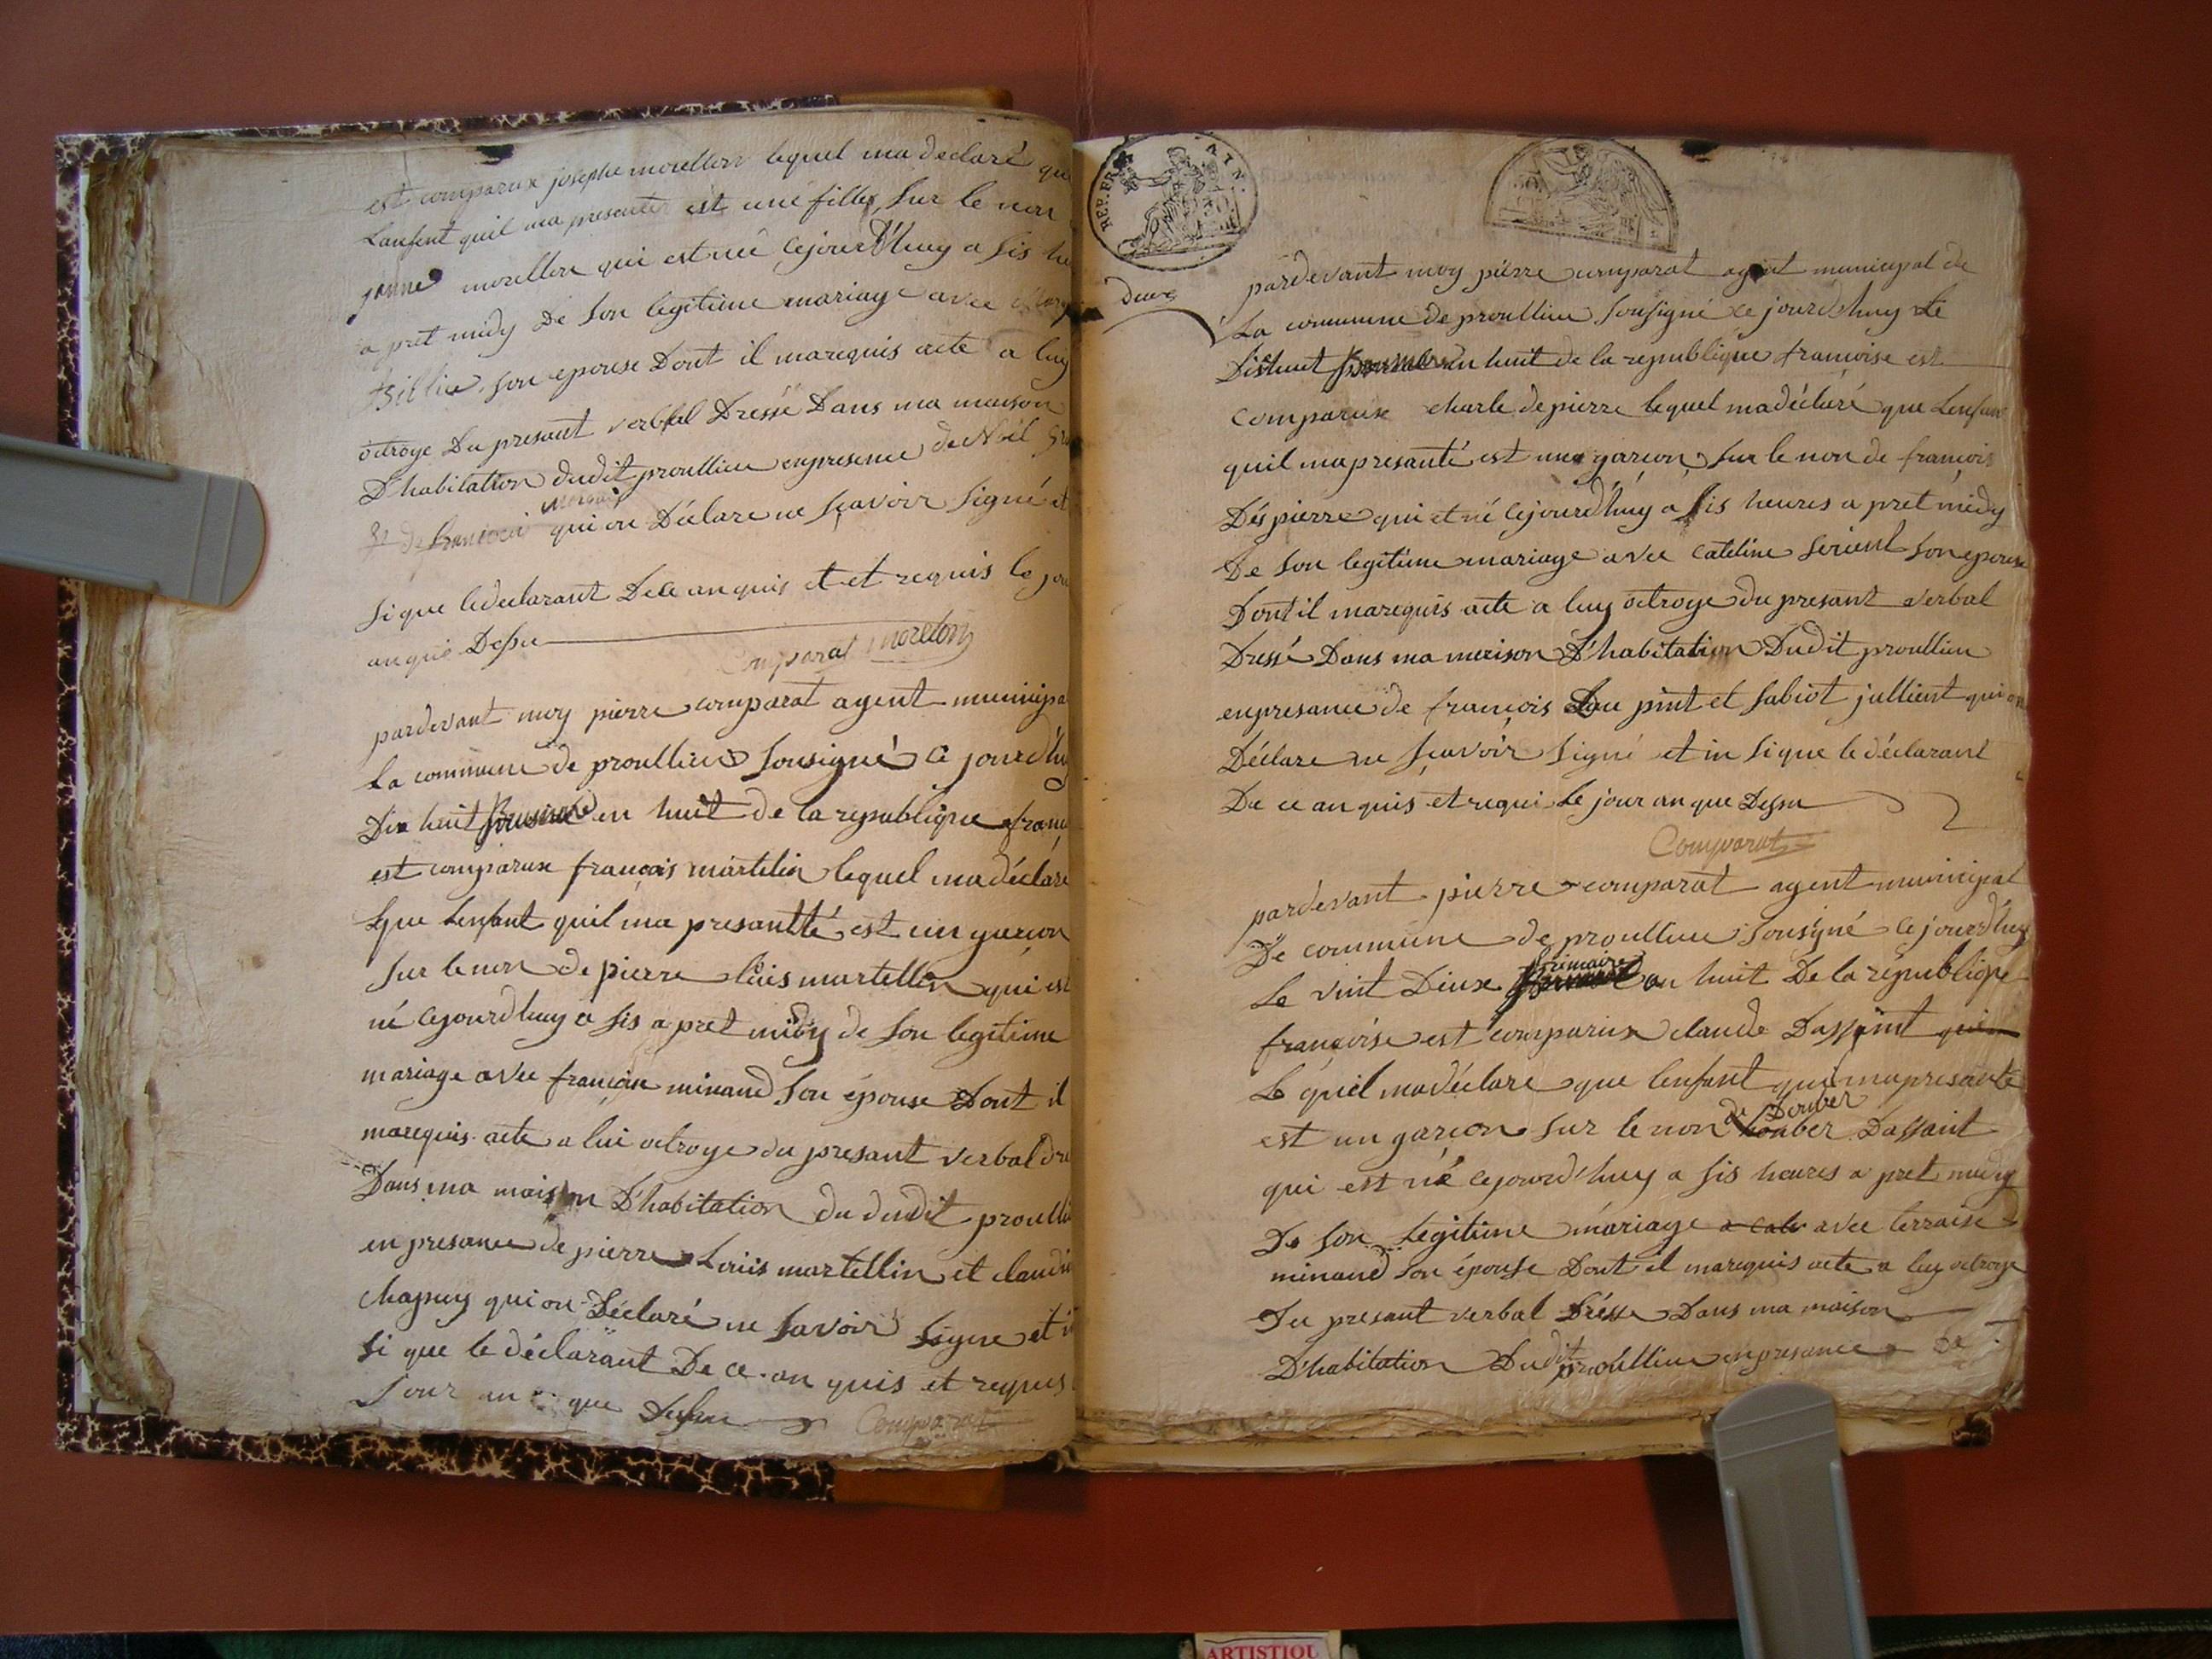 est comparux josephe morellon lequel ma declaré que
Lanfent quil ma presenter est une filles, sur le non
janne morellon qui est née cejourd'huy a sis he
a pret midy De son legitime mariage avec
son epouse Dont il marequis acte a luy
octroye Du presant verbal Dressé Dans ma maison
D'habitation dudit proullieu enpresence de Noël
qui on Déclare ne sçavoir signé et
si que ledeclarant De ce anquis et et requis le jou
an que Dessu
Comparat morelon
pardevant moy pierre comparat agent municipa
La commune de proullieu sousigné ce jourd'huy
Dix huit en huit de la republique franc
est comparux françois martelin lequel ma déclaré
que Lenfant quil ma presantté est un garcon
sur le non de pierre Louis martellin qui est
né cejourdhuy a sis a pret midy de son legitime
mariage avec françoise minand son épouse Dont il
marequis acte a lui octroye du presant verbal dre
Dans ma maison D'habitation du dudit proulli
en presance de pierre Louis martellin et claude
chapuy qui on Déclaré ne savoir signe et i
si que le déclarant De ce an quis et requis
jour an que dessu Comparat
REP. FRA ATN.
deux
pardevant moy pierre comparat agent municipal de
La commune de proullieu sousigné ce jourd'huy le
Dishuit an huit de la republique françoise est
comparux charle depierre lequel madéclaré que Lenfant
quil mapresanté est une garcon sur le non de françois
Déspierre qui et né cejourd'huy a sis heures a pret midy
De son legitime mariage avec cateline son epouse
Dont il marequis acte a luy octroye du presant verbal
Dressé Dans ma maison D'habitation Dudit proullieu
enpresance de françois Lau pint et fabiot jullient qui on
Déclare ne sçavoir signé et in si que le déclarant
De ce an quis et requi Le jour an que Dessu
Comparat
pardevant pierre comparat agent municipal
De commune de proullieu sousigné cejourd'huy
Le vint Deux frimaire an huit De la république
françoise est comparux claude Dassaint
Le quel madéclare que lenfant quil mapresante
est un garcon sur le non de Douber Dassaint
qui est né cejourd'huy a sis heures a pret midy
De son Legitime mariage a cate avec terraise
minand son épouse Dont il marequis acte a luy octroye
Du presant verbal Dréssé Dans ma maison
D'habitation Dudit proullieu enpresance de
ARTISTIQU